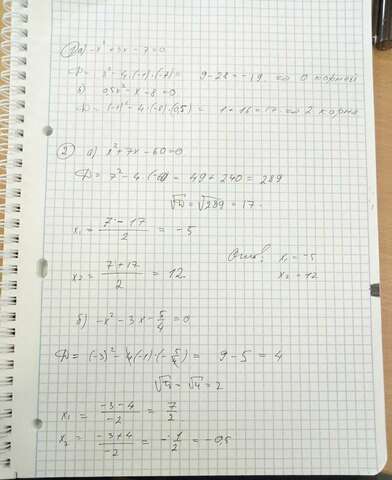 ① а) -x² + 3x - 7 = 0
D = x² - 4·(-1)·(-7) = 9 - 28 = -19 ⇔ 0 корней
б) 0,5x² - x - 8 = 0
D = (-1)² - 4·(-8)·(0,5) = 1 + 16 = 17 ⇔ 2 корня
② а) x² + 7x - 60 = 0
D = 7² - 4·(-60) = 49 + 240 = 289
√D = √289 = 17
x₁ = (7 - 17)/2 = -5
x₂ = (7 + 17)/2 = 12
Ответ: x₁ = -5
x₂ = 12
б) -x² - 3x - 5/4 = 0
D = (-3)² - 4·(-1)·(-5/4) = 9 - 5 = 4
√D = √4 = 2
x₁ = (-3 - 4)/-2 = 7/2
x₂ = (-3 + 4)/-2 = -1/2 = -0,5